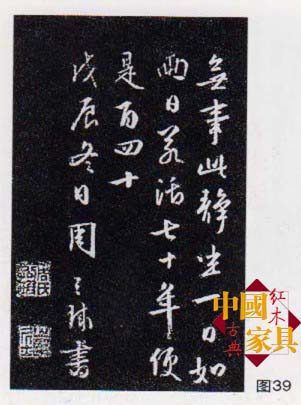 無事此靜坐一日如
兩日若活七十年便
是百四十
戊辰冬日周天球書
中國
紅木
古典
家具
图39